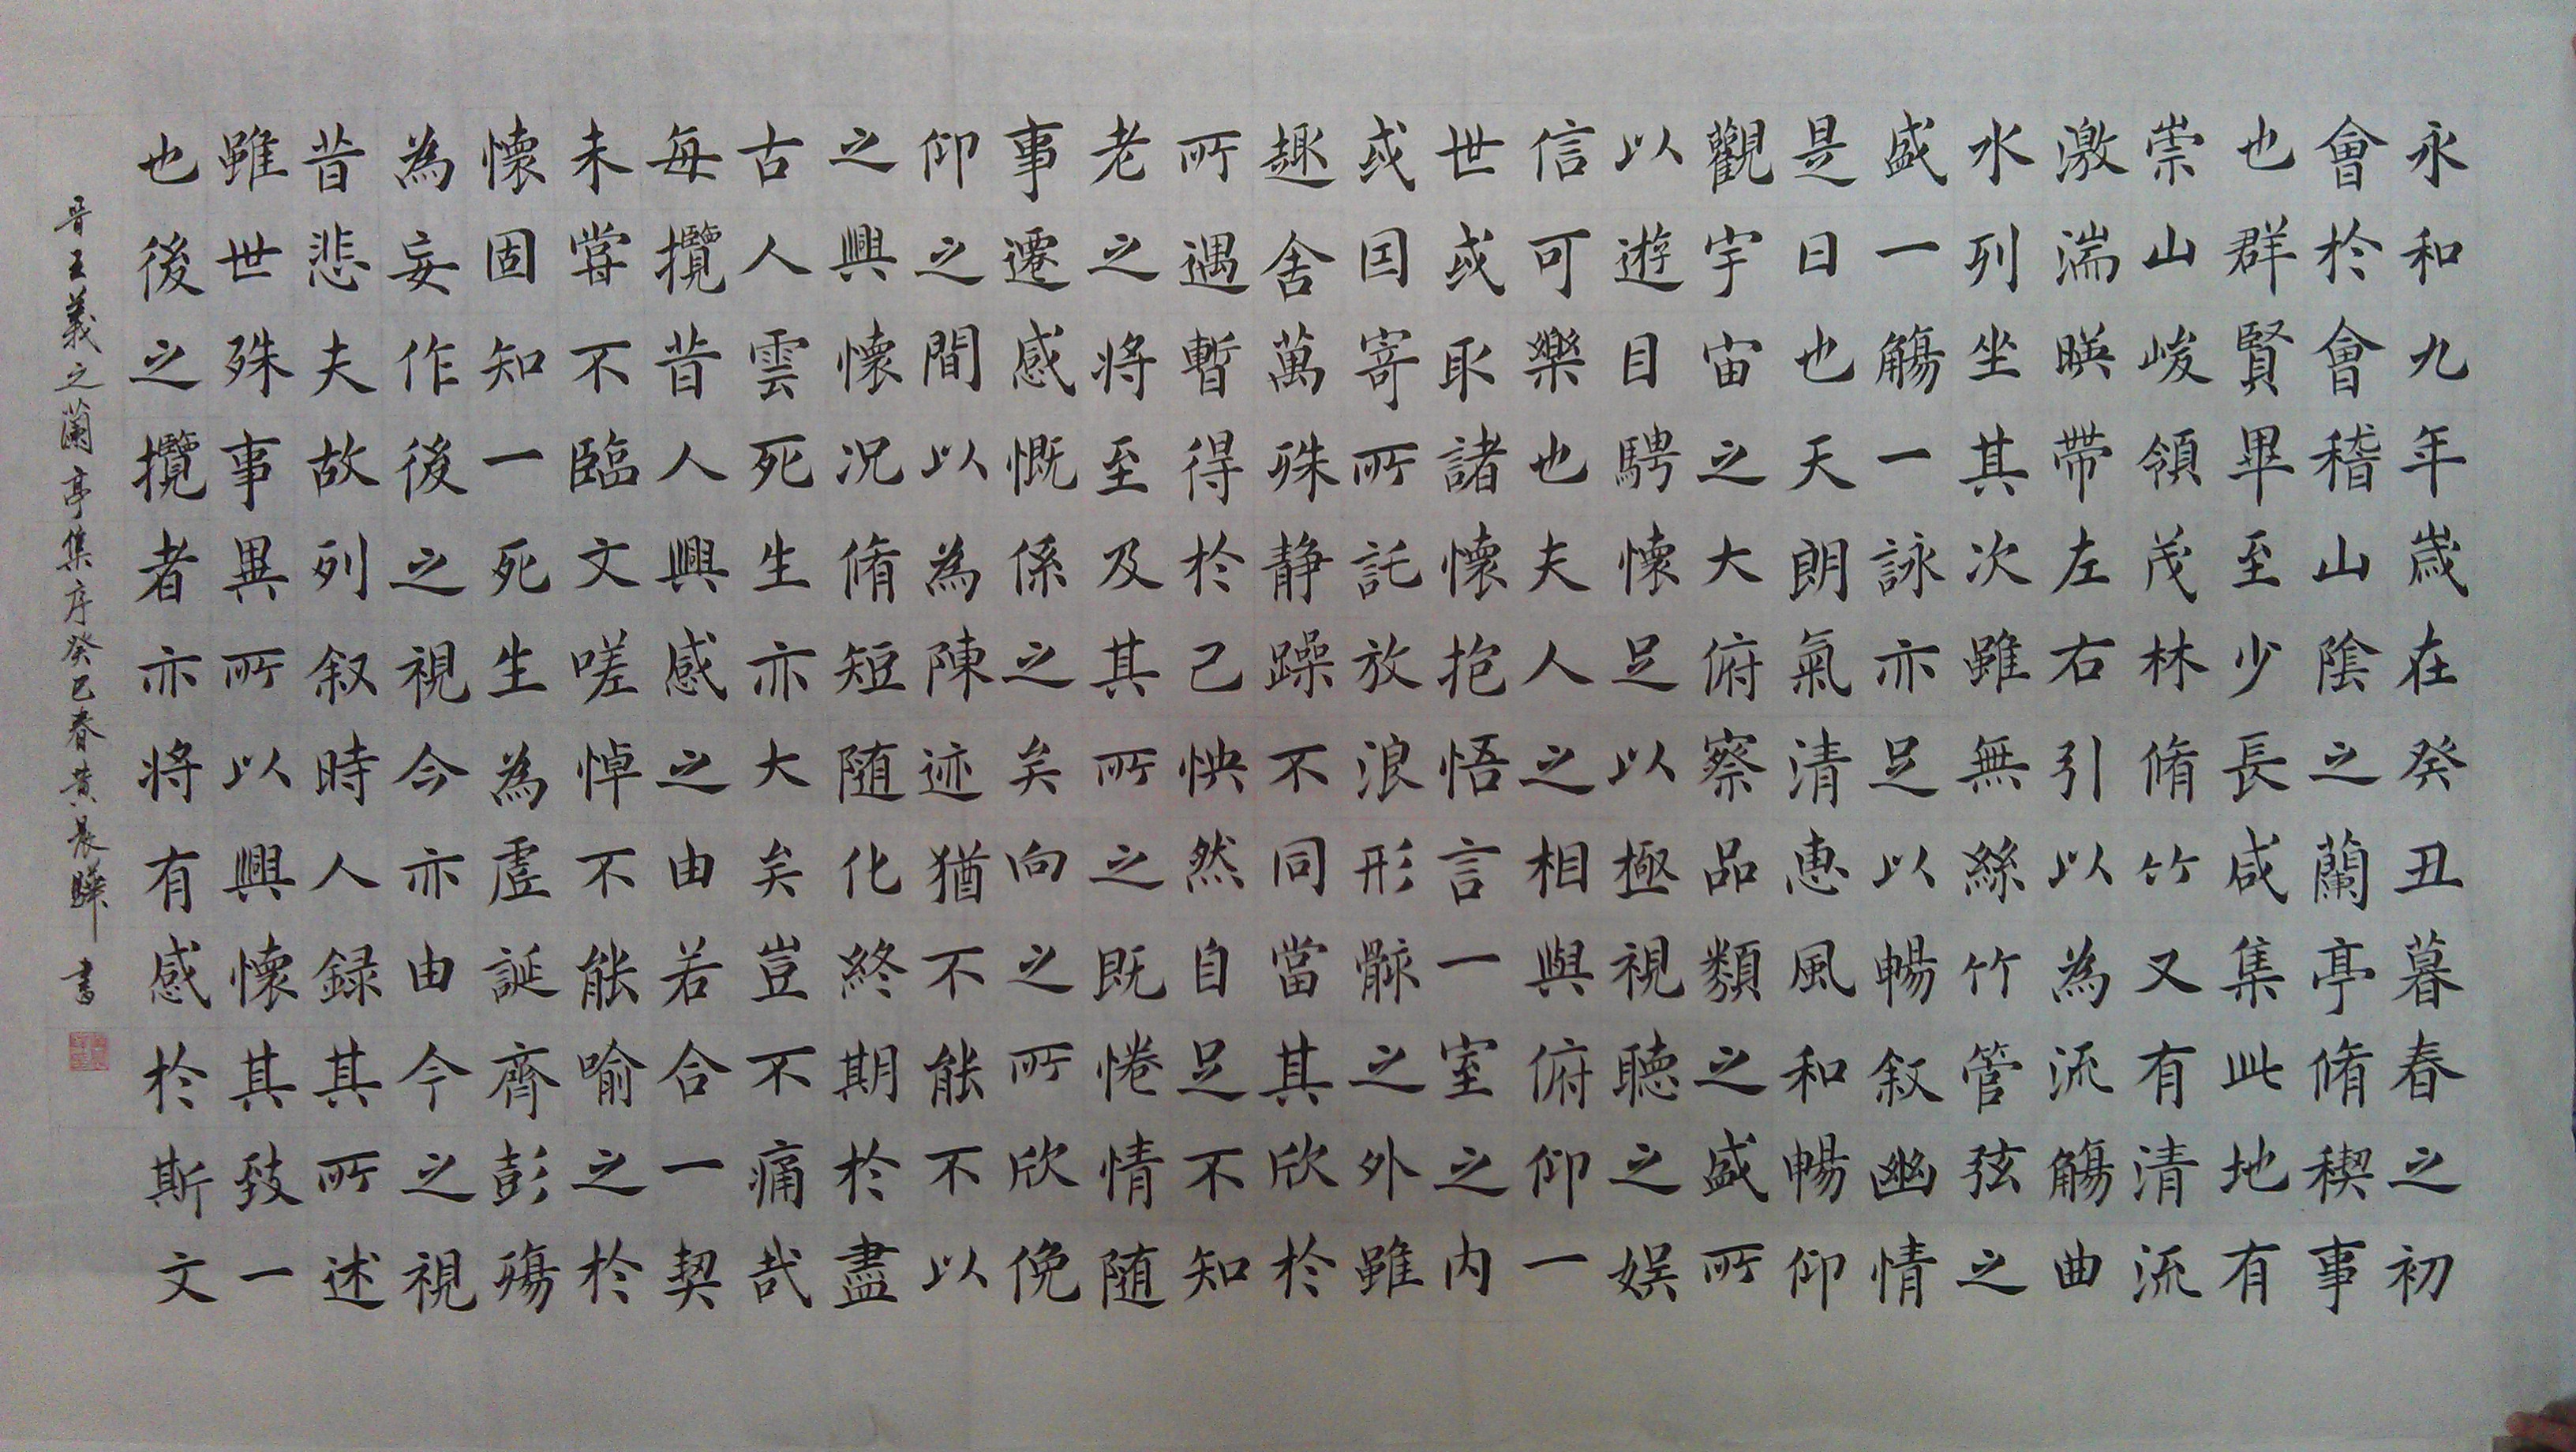 永和九年歲在癸丑暮春之初
會於會稽山陰之蘭亭脩稧事
也群賢畢至少長咸集此地有
崇山峻領茂林脩竹又有清流
激湍暎帶左右引以為流觴曲
水列坐其次雖無絲竹管弦之
盛一觴一詠亦足以暢叙幽情
是日也天朗氣清惠風和暢仰
觀宇宙之大俯察品類之盛所
以遊目騁懷足以極視聽之娱
信可樂也夫人之相與俯仰一
世或取諸懷抱悟言一室之内
或因寄所託放浪形骸之外雖
趣舍萬殊静躁不同當其欣於
所遇暫得於己怏然自足不知
老之将至及其所之既惓情随
事遷感慨係之矣向之所欣俛
仰之間以為陳迹猶不能不以
之興懷况脩短随化終期於盡
古人雲死生亦大矣豈不痛哉
每攬昔人興感之由若合一契
未嘗不臨文嗟悼不能喻之於
懷固知一死生為虚誕齊彭殤
為妄作後之視今亦由今之視
昔悲夫故列叙時人録其所述
雖世殊事異所以興懷其致一
也後之攬者亦将有感於斯文
晋王羲之蘭亭集序癸巳春黄晨暎書